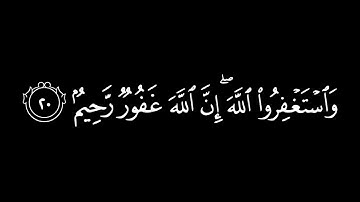 وَٱسۡتَغۡفِرُواْ ٱللَّهَۖ إِنَّ ٱللَّهَ غَفُورٞ رَّحِيمُۢ ٢٠